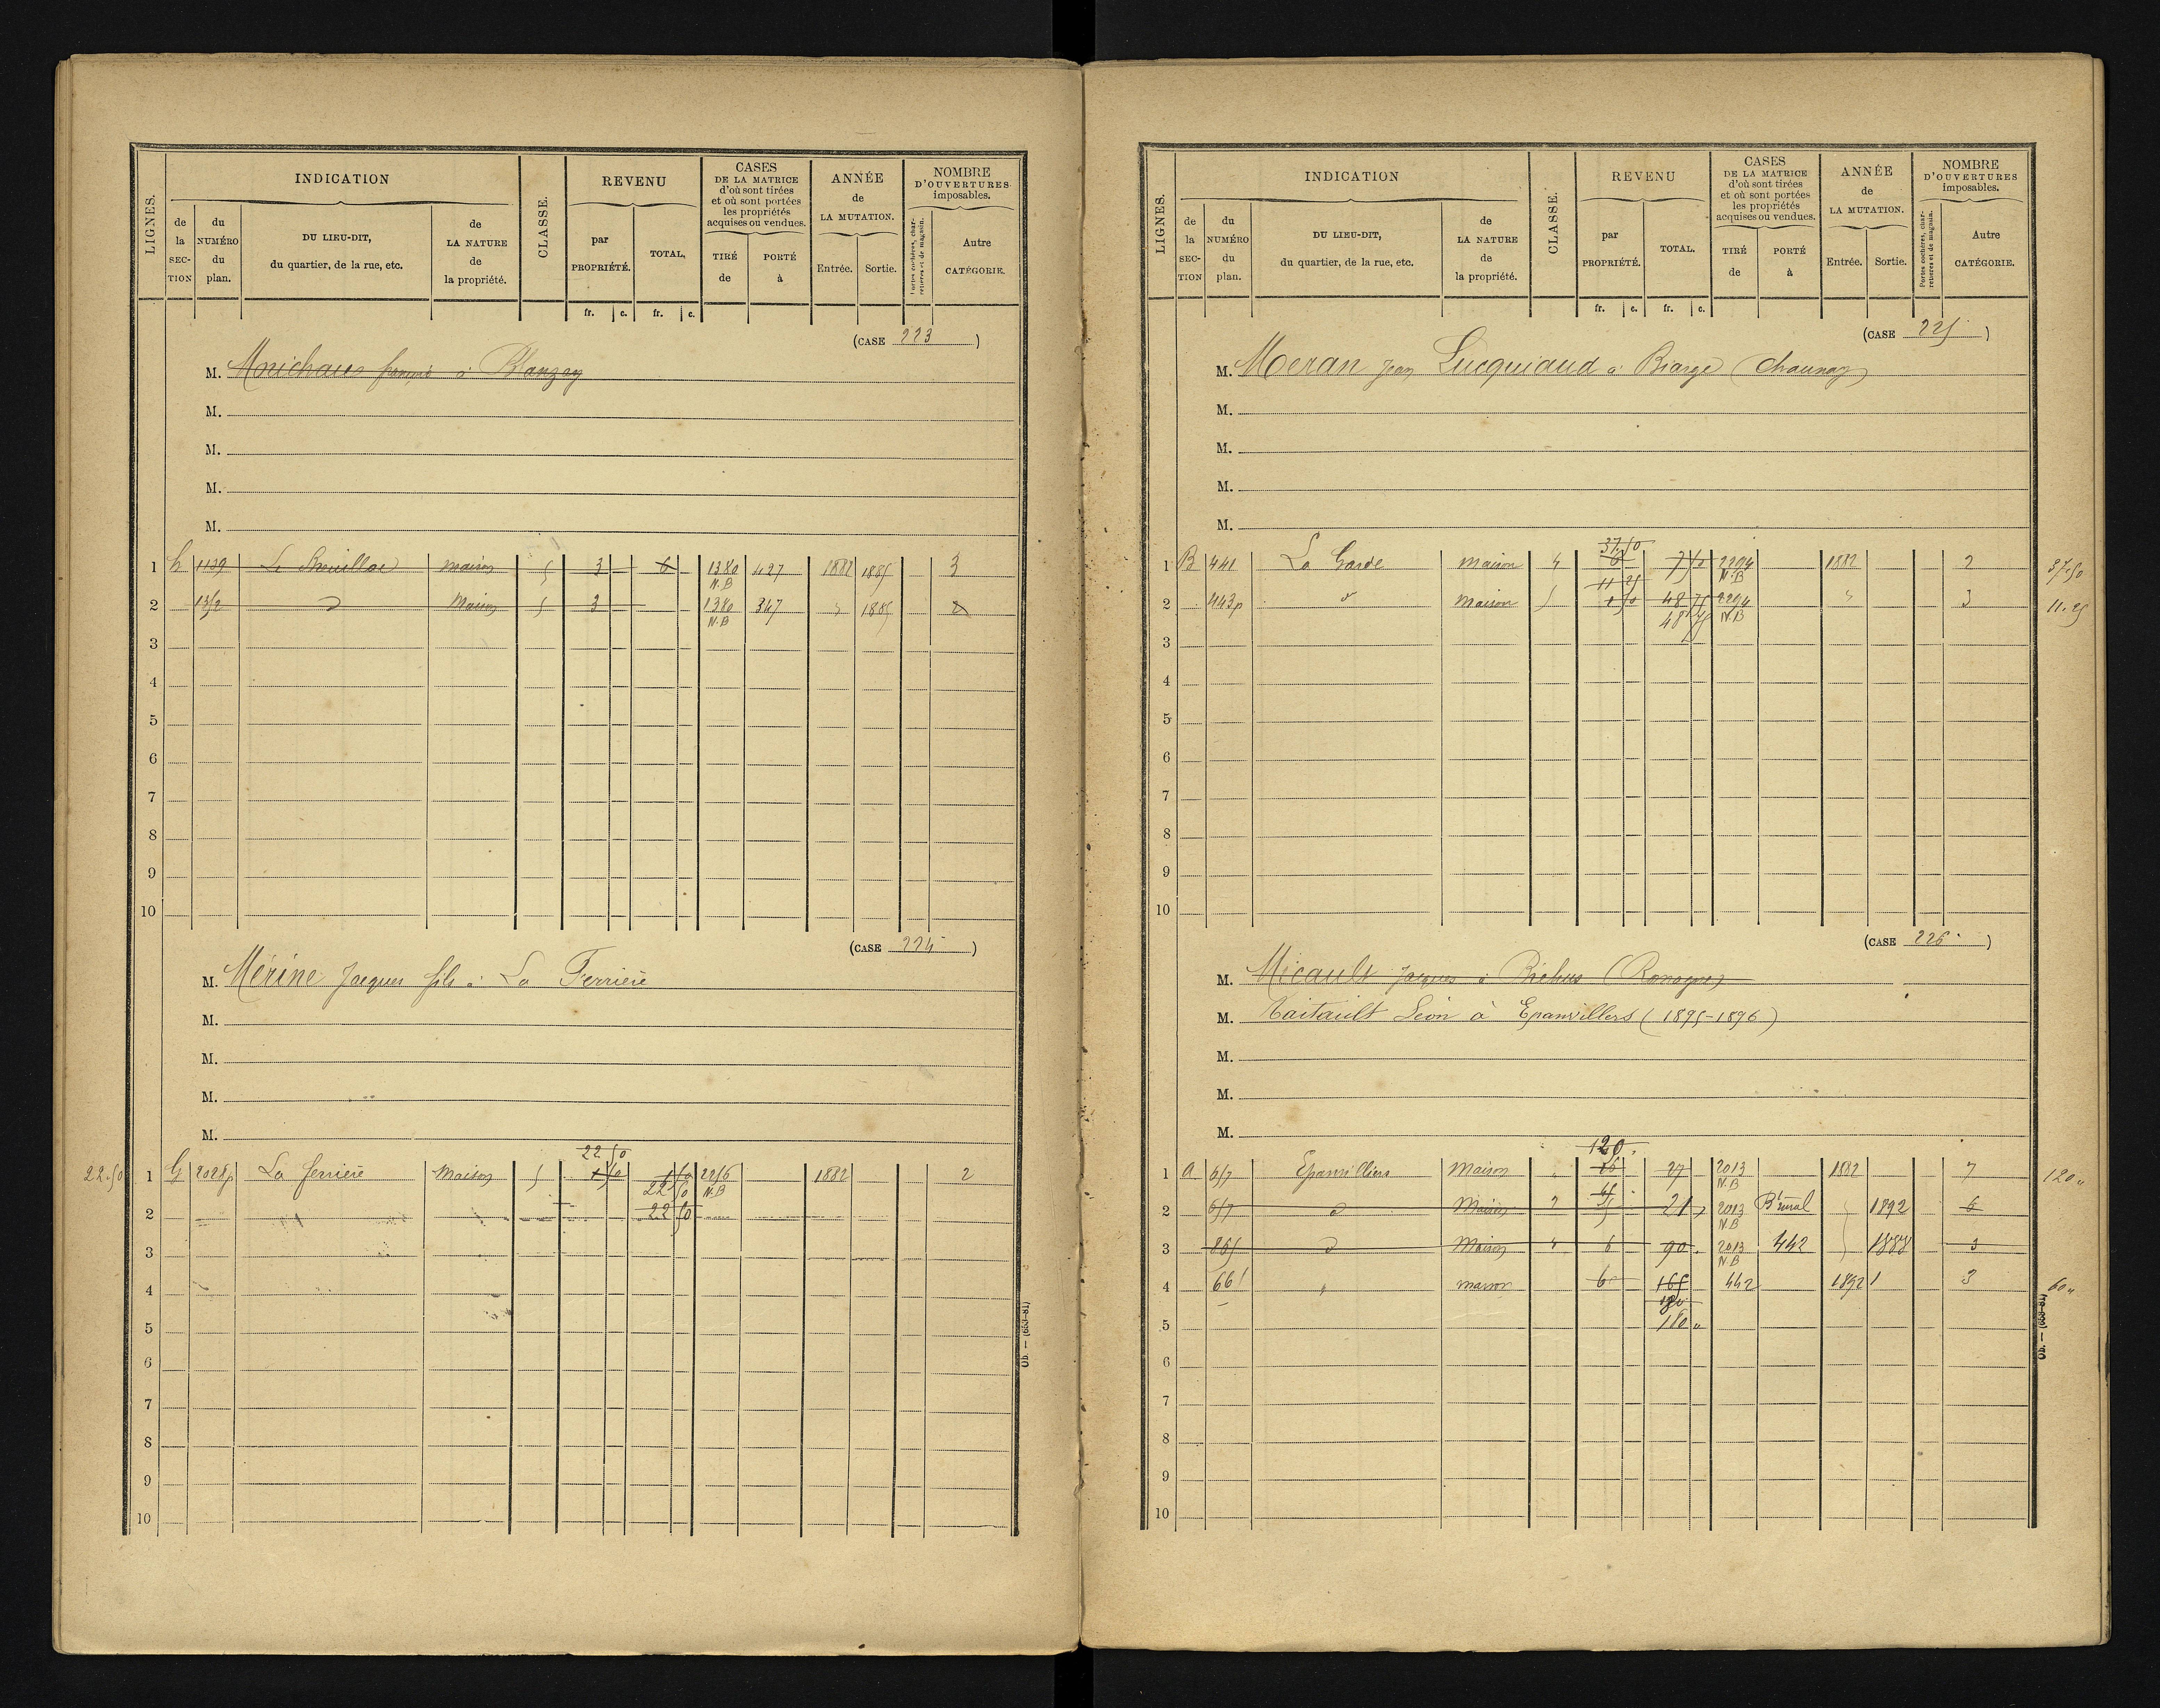 LIGNES. INDICATION CLASSE. REVENU CASES DE LA MATRICE d'où sont tirées et où sont portées les propriétés acquises ou vendues. ANNÉE de LA MUTATION. NOMBRE D'OUVERTURES imposables.
de la SECTION du NUMÉRO du plan. DU LIEU-DIT, du quartier, de la rue, etc. de LA NATURE de la propriété. par PROPRIÉTÉ. TOTAL. TIRÉ de PORTÉ à Entrée. Sortie. Portes cochères, charretières et de magasin. Autre CATÉGORIE.
fr. c. fr. c.
(CASE 223)
M. françois à Blanzay
M.
M.
M.
M.
1 h 1139 maison 5 3 6 1380 N.B 427 1882 1885 3
2 1352 d Maison 5 3 1380 N.B 347 " 1885 2
3
4
5
6
7
8
9
10
(CASE 224)
M. Mérine Jacques fils à La Ferrière
M.
M.
M.
M.
22 50
22.50 1 G 2028p La ferriere Maison 5 1 50 1 50 2256 N.B 1882 2
22 50
2 22 50
3
4
5
6
7
8
9
10
Ob. — (653-81)
LIGNES. INDICATION CLASSE. REVENU CASES DE LA MATRICE d'où sont tirées et où sont portées les propriétés acquises ou vendues. ANNÉE de LA MUTATION. NOMBRE D'OUVERTURES imposables.
de la SECTION du NUMÉRO du plan. DU LIEU-DIT, du quartier, de la rue, etc. de LA NATURE de la propriété. par PROPRIÉTÉ. TOTAL. TIRÉ de PORTÉ à Entrée. Sortie. Portes cochères, charretières et de magasin. Autre CATÉGORIE.
fr. c. fr. c.
(CASE 225)
M. Meran Jean Lucquiaud à Biarge (Chaunay)
M.
M.
M.
M.
37.50
1 B 441 La Garde maison 4 6 7 50 2294 N.B 1882 2 37.50
11 25
2 443p d° maison 5 1 50 48 75 2294 N.B " 3 11.25
48 75
3
4
5
6
7
8
9
10
(CASE 226)
M. Micault Jacques à (Romagne)
M. Taitault Léon à Epanvillers (1895-1896)
M.
M.
M.
120
1 a 657 Epanvilliers Maison " 27 2013 N.B 1882 7 120 "
2 657 d Maison 2 21 2013 N.B B. rural 1892 6
3 865 d Maison 4 6 90 2013 N.B 442 1888 3
4 661 " maison 6 165 442 1892 3 60 "
180
5 180 "
6
7
8
9
10
Ob. — (653-81)